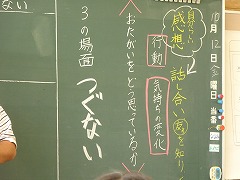 10月12日(金)曜日 当番
自分らしい
感想
話し合い
を知り
行動
気持ちの変化
おたがいをどう思っているか
3の場面 つぐない
ない